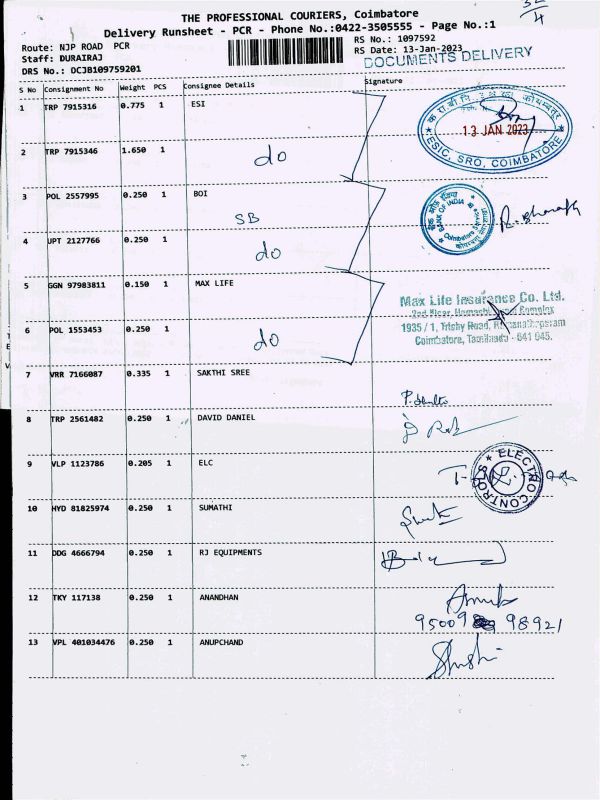 THE PROFESSIONAL COURIERS, Coimbatore
Delivery Runsheet - PCR - Phone No.:0422-3505555 - Page No.:1
Route: NJP ROAD PCR
Staff: DURAIRAJ
DRS No.: OCJB109759201
RS No.: 1097592
RS Date: 13-Jan-2023
DOCUMENTS DELIVERY
S No Consignment No Weight PCS Consignee Details Signature
1 TRP 7915316 0.775 1 ESI
13 JAN 2023
ESIC, SRO, COIMBATORE
2 TRP 7915346 1.650 1 do
3 POL 2557995 0.250 1 BOI
SB
BANK OF INDIA
R. Bharath
4 UPT 2127766 0.250 1 do
5 GGN 97983811 0.150 1 MAX LIFE
Max Life Insurance Co. Ltd.
1935 / 1, Trichy Road, Ramanathapuram
Coimbatore, Tamilnadu - 641 045.
6 POL 1553453 0.250 1 do
7 VRR 7166087 0.335 1 SAKTHI SREE
8 TRP 2561482 0.250 1 DAVID DANIEL
9 VLP 1123786 0.205 1 ELC
ELECTRO CONTROLS
10 HYD 81825974 0.250 1 SUMATHI
11 DDG 4666794 0.250 1 RJ EQUIPMENTS
12 TKY 117138 0.250 1 ANANDHAN
95009 98921
13 VPL 401034476 0.250 1 ANUPCHAND